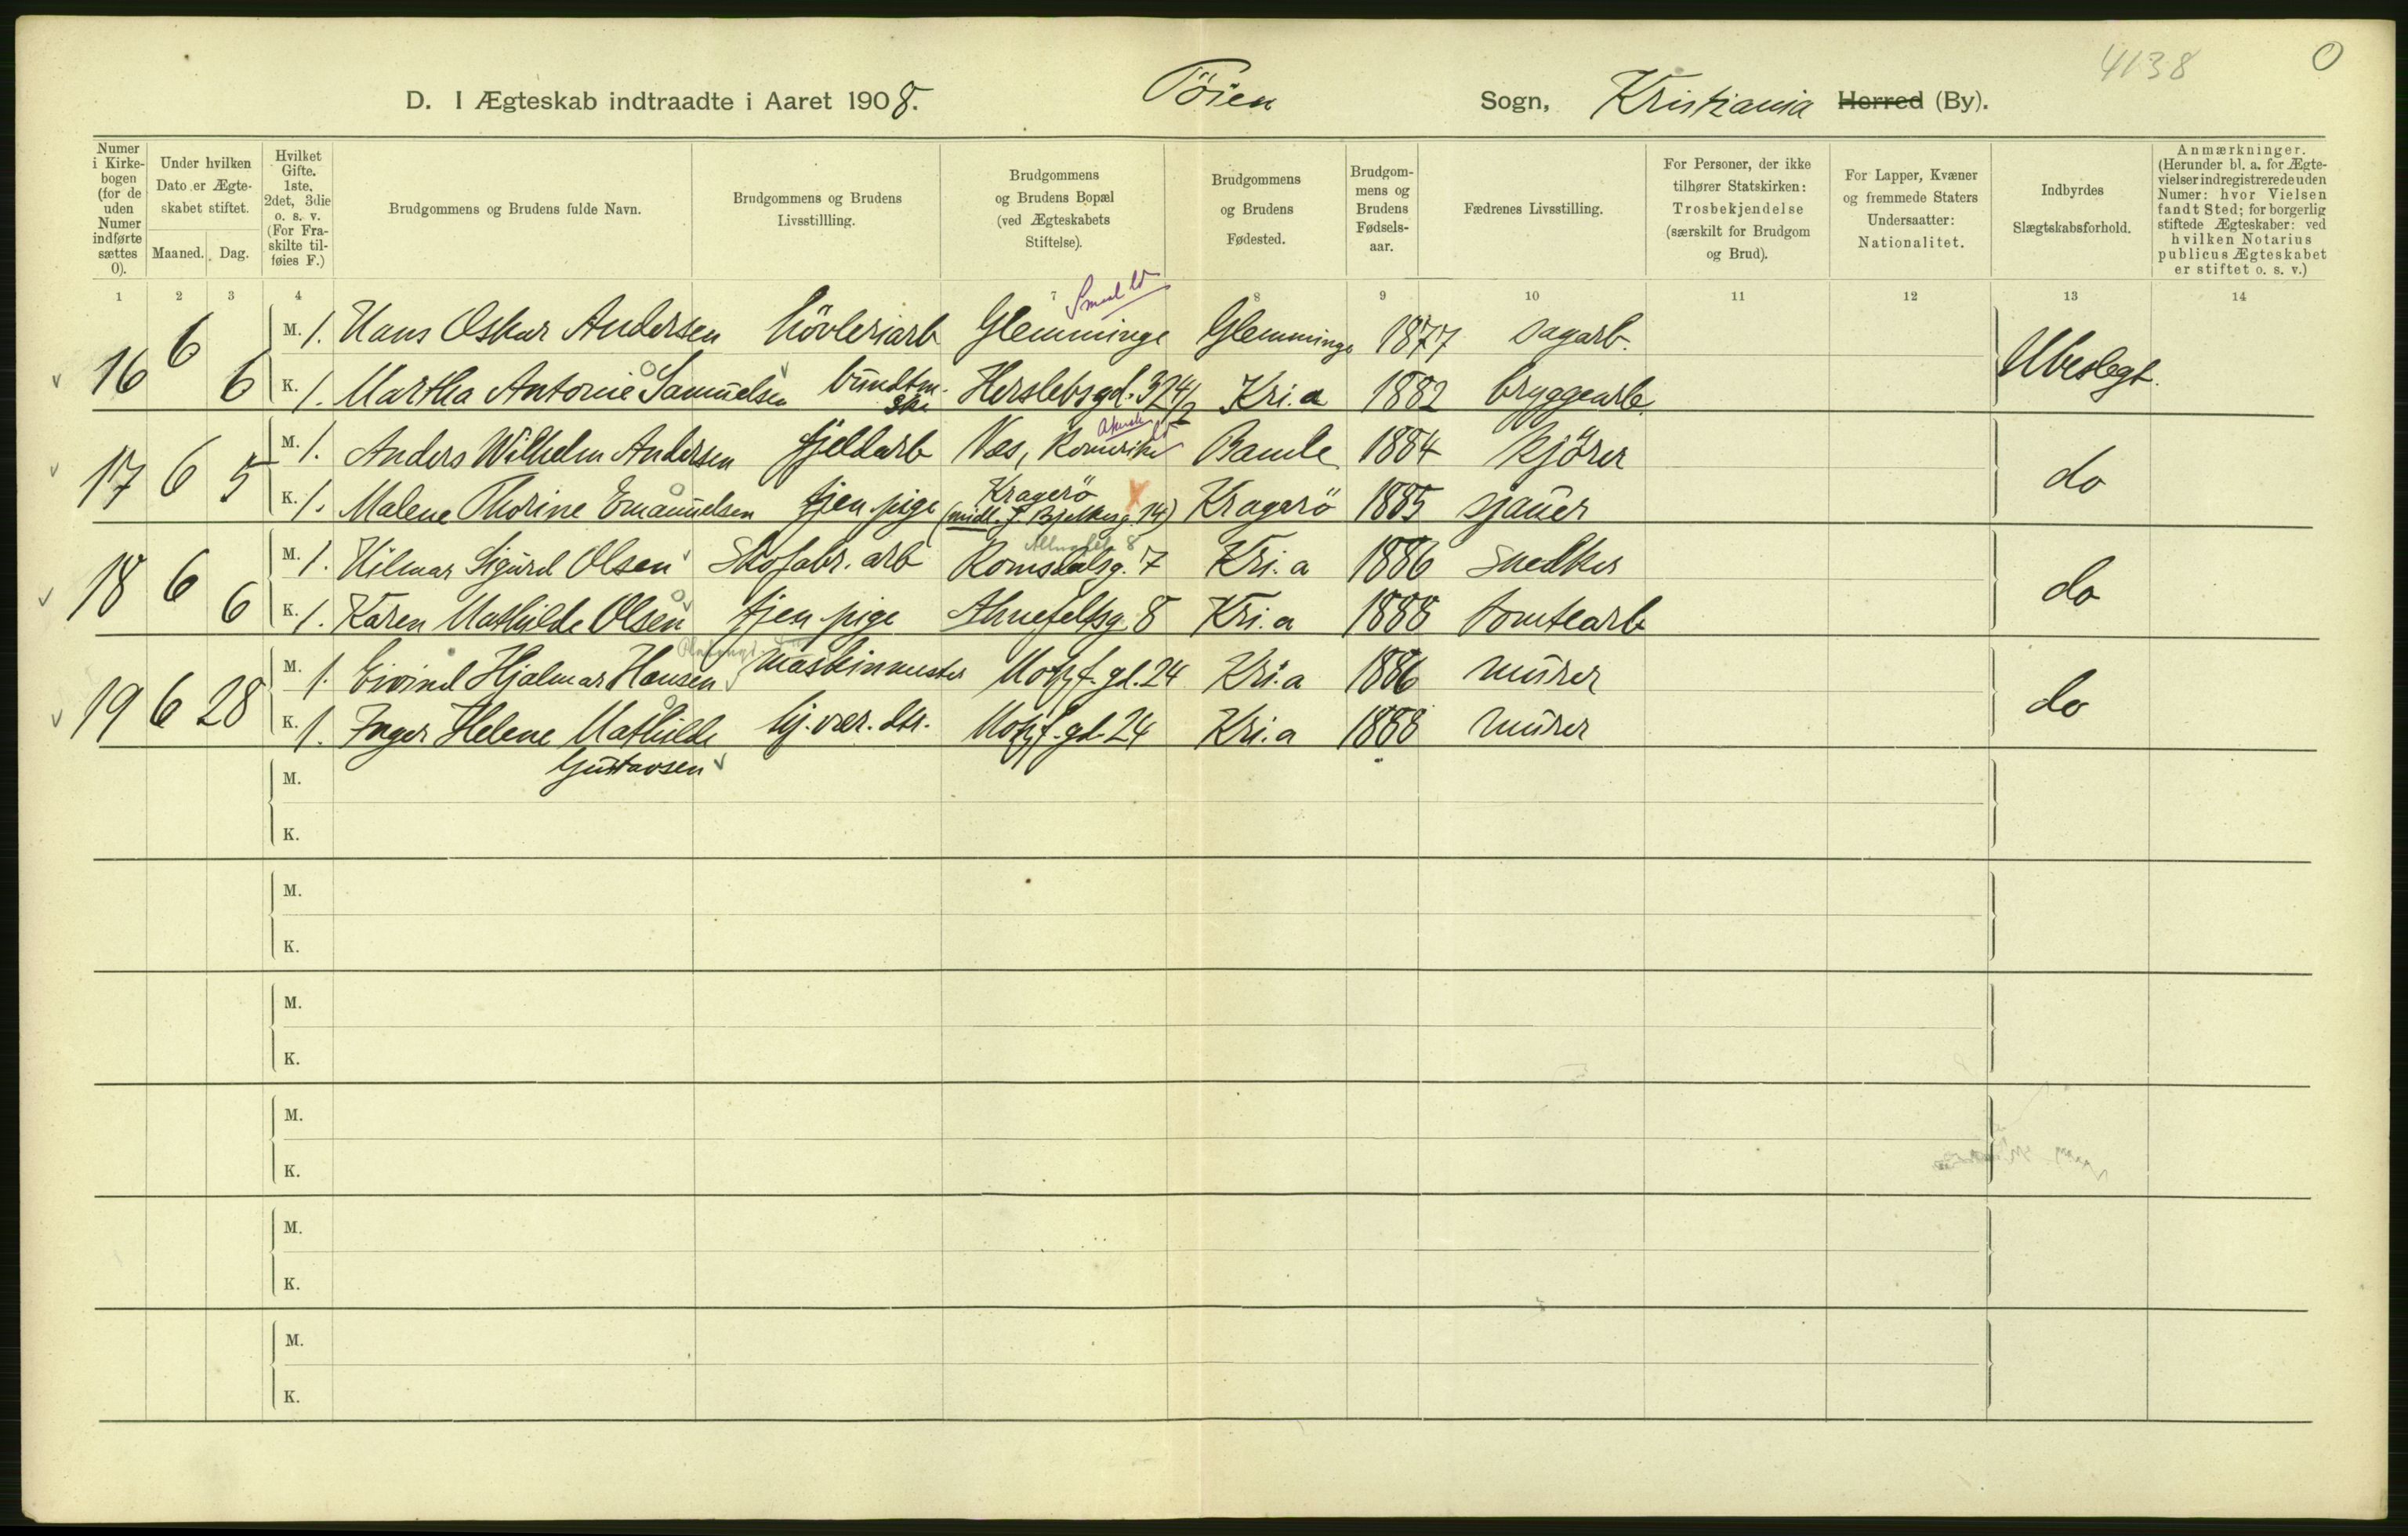 4138 0
D. I Ægteskab indtraadte i Aaret 1908. Töien Sogn, Kristiania Herred (By).
Numer i Kirkebogen (for de uden Numer indførte sættes 0).
Under hvilken Dato er Ægteskabet stiftet.
Maaned. Dag.
Hvilket Gifte. 1ste, 2det, 3die o. s. v. (For Fraskilte tilføies F.)
Brudgommens og Brudens fulde Navn.
Brudgommens og Brudens Livsstillling.
Brudgommens og Brudens Bopæl (ved Ægteskabets Stiftelse).
Brudgommens og Brudens Fødested.
Brudgommens og Brudens Fødselsaar.
Fædrenes Livsstilling.
For Personer, der ikke tilhører Statskirken: Trosbekjendelse (særskilt for Brudgom og Brud).
For Lapper, Kvæner og fremmede Staters Undersaatter: Nationalitet.
Indbyrdes Slægtskabsforhold.
Anmærkninger. (Herunder bl. a. for Ægtevielser indregistrerede uden Numer: hvor Vielsen fandt Sted; for borgerlig stiftede Ægteskaber: ved hvilken Notarius publicus Ægteskabet er stiftet o. s. v.)
1 2 3 4 7 8 9 10 11 12 13 14
16 6 6 M. 1. Hans Oskar Andersen hövleriarb Glemminge Glemminge 1877 sagarb. Ubeslegt.
K. 1. Martha Antonie Samuelsen bundtm. ske Herslebsgd. 32 4/2 Kri.a 1882 bryggearb.
17 6 5 M. 1. Anders Wilhelm Andersen fjeldarb Nes, Romerike Bamle 1884 kjörer do
K. 1. Malene Thorine Emanuelsen tjen. pige Kragerö (midl. J. Bjelkesg. 14) Kragerö 1885 sjauer
18 6 6 M. 1. Hilmar Sigurd Olsen Skofabr. arb Romsdalsg. 7 Kri.a 1886 snedker do
K. 1. Karen Mathilde Olsen tjen pige Ahnefeltsg. 8 Kri.a 1888 tomtearb
19 6 28 M. 1. Eivind Hjalmar Hansen maskinmester Motzf. gd. 24 Kri.a 1886 murer do
K. 1. Inger Helene Mathilde hj. vær. dtr. Motzf. gd. 24 Kri.a 1888 murer
Gustavsen
M.
K.
M.
K.
M.
K.
M.
K.
M.
K.
M.
K.